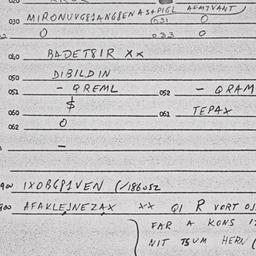 030 MIRONUVG81ANG8EN AS+PIGL AFMTVANT
031 0
0 033 0
040 BADET8IR XX
050 DIBILDIN
051 - QREML 052 - QRAM
$
060 061 TEPAX
062 0
-
IXOBGPIVEN (/186052
AFAKLEJNEZAX XX QI R VORT
FAR A KONS
NIT TSUM HERN (